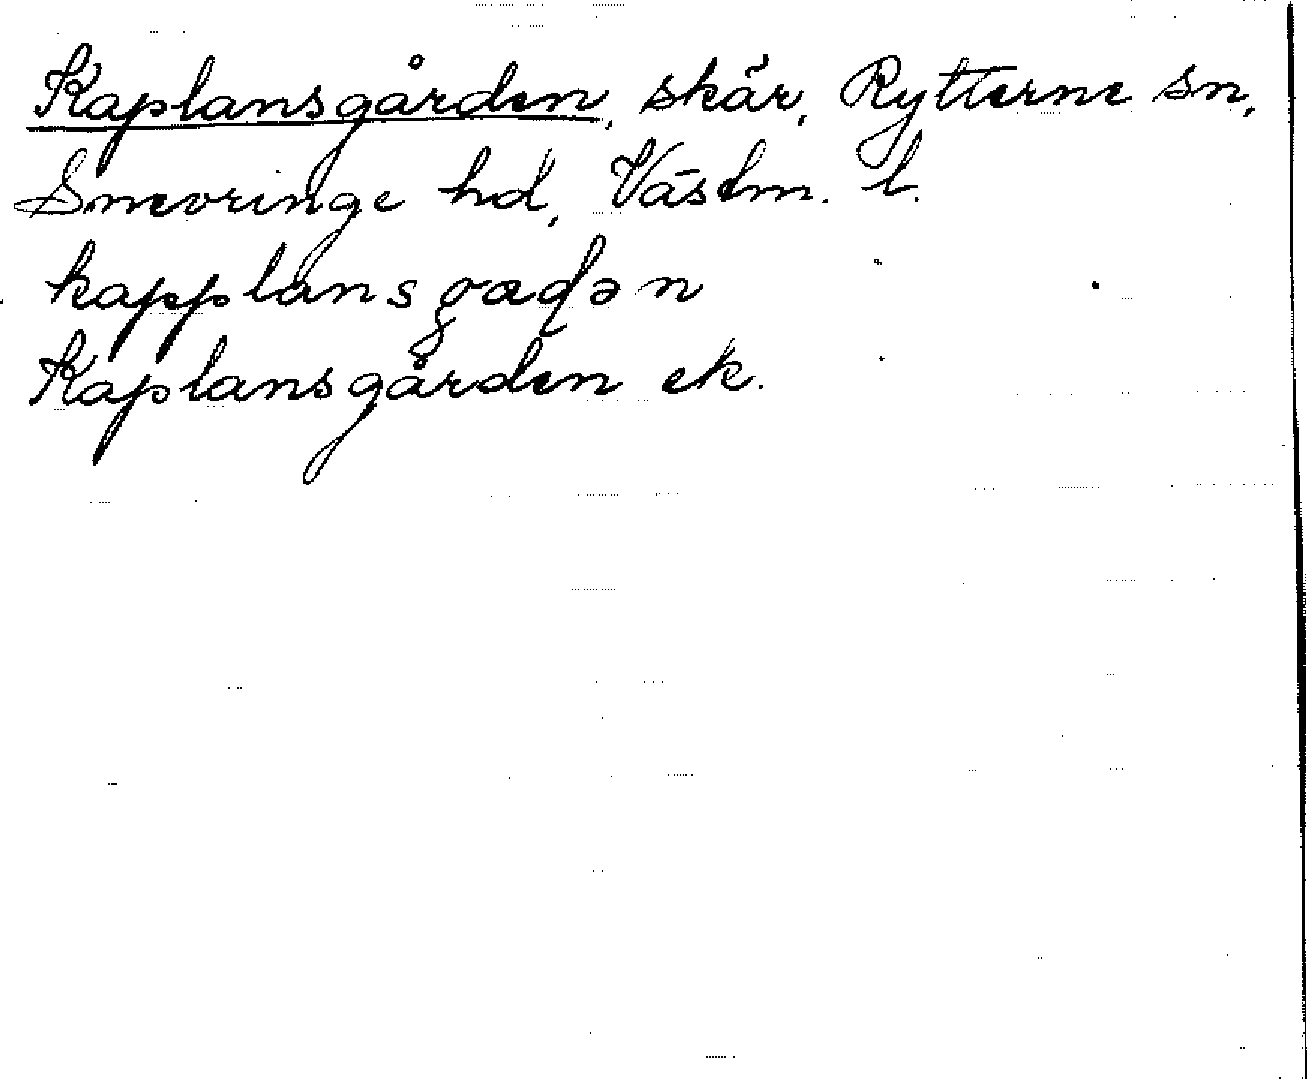 Kaplansgården, skär, Rytterne sn,
Snevringe hd, Västm. l.
kapplansgaɖən
Kaplansgården ek.